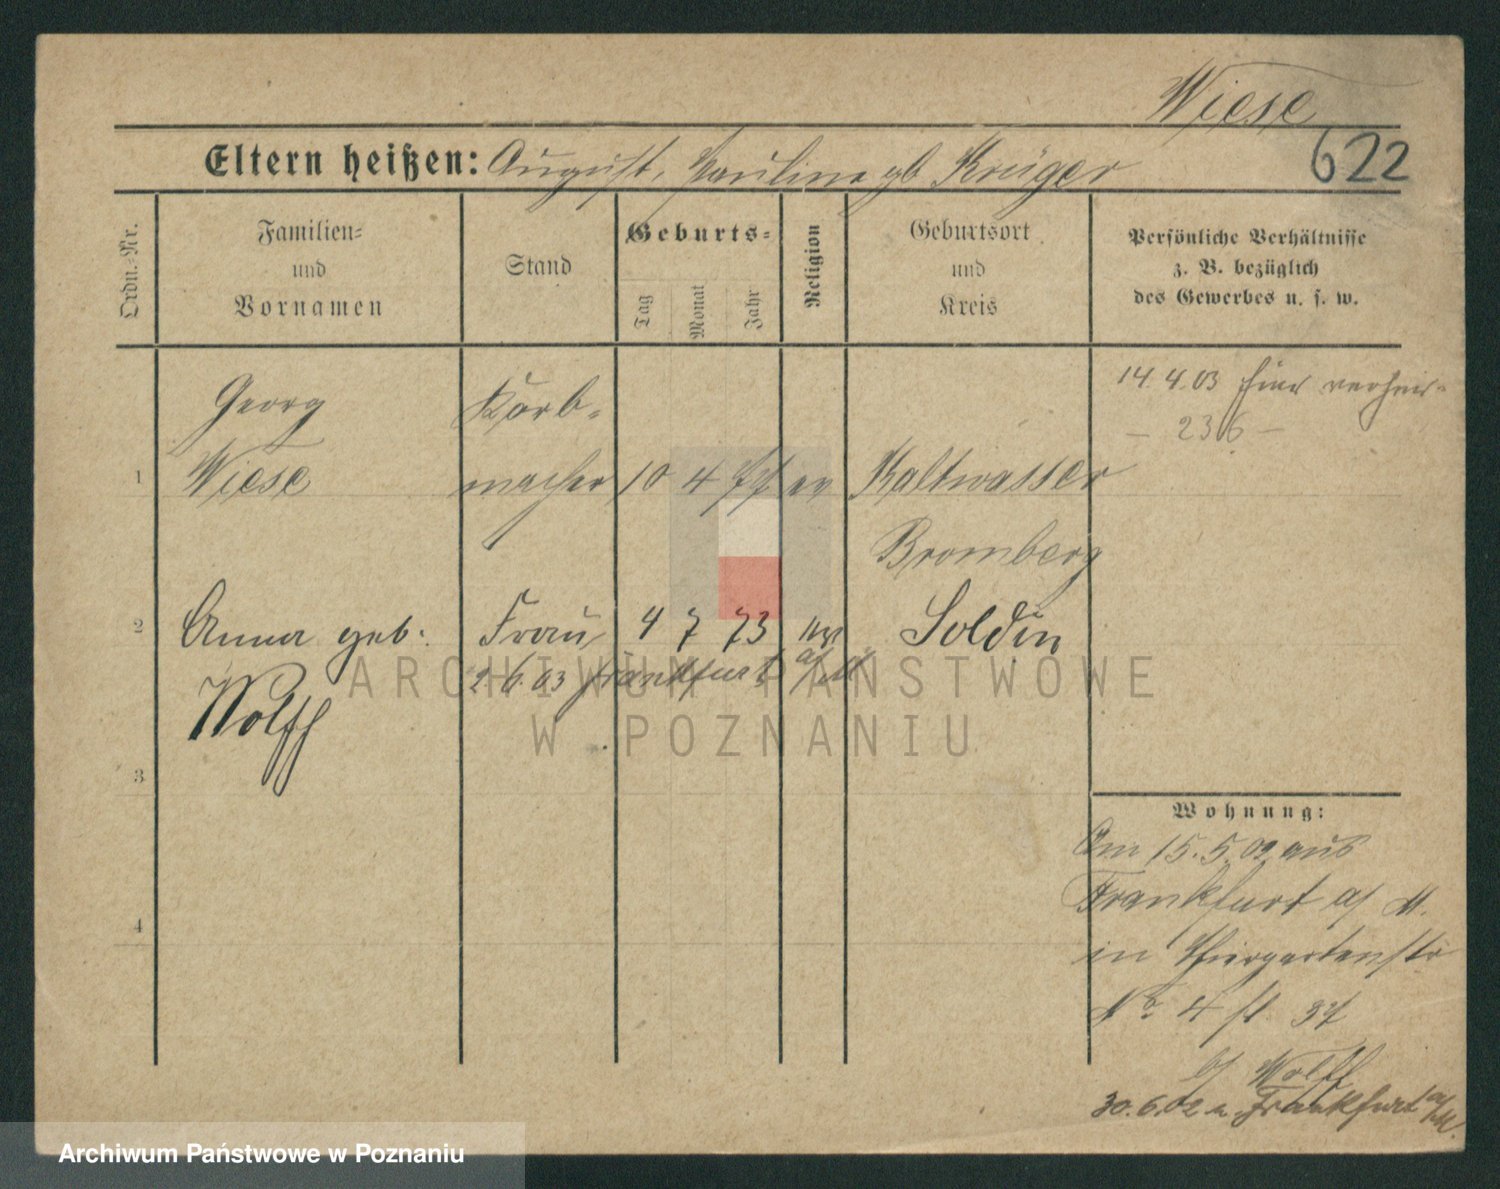 Wiese
622
Eltern heißen: August, Pauline gb Krüger
Ordn.-Nr.
Familien-
und
Vornamen
Stand
Geburts-
Tag
Monat
Jahr
Religion
Geburtsort
und
Kreis
Persönliche Verhältnisse
z. B. bezüglich
des Gewerbes u. s. w.
14.4.03 hier verheir-
- 236 -
Georg Korb-
1 Wiese macher 10 4 77 ev Kaltwasser
Bromberg
2 Anna geb. Frau 4 7 73 Soldin
Wolff 2.6.03 Frankfurt a/M
3
4
Wohnung:
Am 15.5.02 aus
Frankfurt a/ M.
in Thiergartenstr
No 4 37
b/ Wolff
30.6.02 n. Frankfurt a/M.
ARCHIWUM PAŃSTWOWE
W POZNANIU
Archiwum Państwowe w Poznaniu